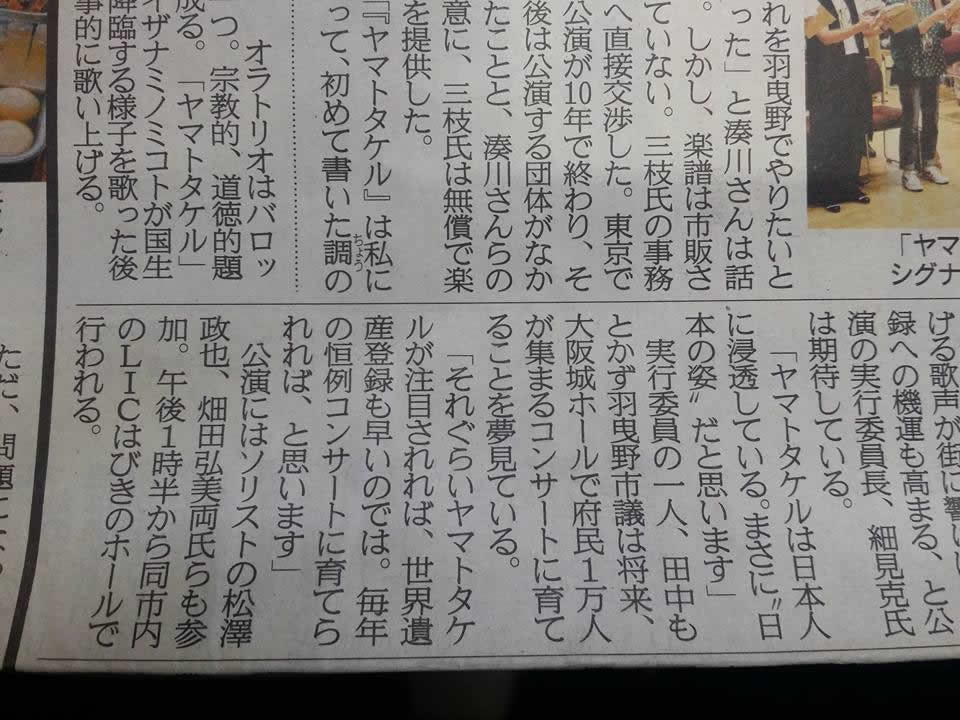 れを羽曳野でやりたいと
った」と湊川さんは話
。しかし、楽譜は市販さ
ていない。三枝氏の事務
へ直接交渉した。東京で
公演が10年で終わり、そ
後は公演する団体がなか
たことと、湊川さんらの
意に、三枝氏は無償で楽
を提供した。
「『ヤマトタケル』は私に
って、初めて書いた調の
ちょう
オラトリオはバロッ
一つ。宗教的、道徳的題
成る。「ヤマトタケル」
イザナミノミコトが国生
降臨する様子を歌った後
事的に歌い上げる。
「ヤマ
シグナ
げる歌声が街に響けば
録への機運も高まる、と公
演の実行委員長、細見克氏
は期待している。
「ヤマトタケルは日本人
に浸透している。まさに〝日
本の姿〟だと思います」
実行委員の一人、田中も
とかず羽曳野市議は将来、
大阪城ホールで府民1万人
が集まるコンサートに育て
ることを夢見ている。
「それぐらいヤマトタケ
ルが注目されれば、世界遺
産登録も早いのでは。毎年
の恒例コンサートに育てら
れれば、と思います」
公演にはソリストの松澤
政也、畑田弘美両氏らも参
加。午後1時半から同市内
のLICはびきのホールで
行われる。
ただ、問題に